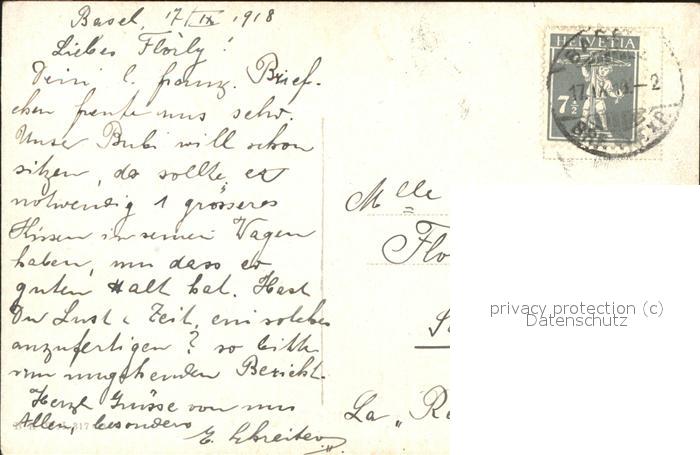 Basel, 17/IX 1918
Liebes Flörly!
Dein l. franz. Brief-
chen freute uns sehr.
Unser Bubi will schon
sitzen, da sollte er
notwendig 1 grösseres
Kissen in seinen Wagen
haben, um dass er
guten Halt hat. Hast
Du Lust & Zeit, ein solches
anzufertigen? so bitte
um umgehenden Bericht.
Herzl Grüsse von uns
Allen, besonders
E. Schreiber
HELVETIA
7½
17.IX.18-2
Mlle
Flo
La „Re
privacy protection (c)
Datenschutz